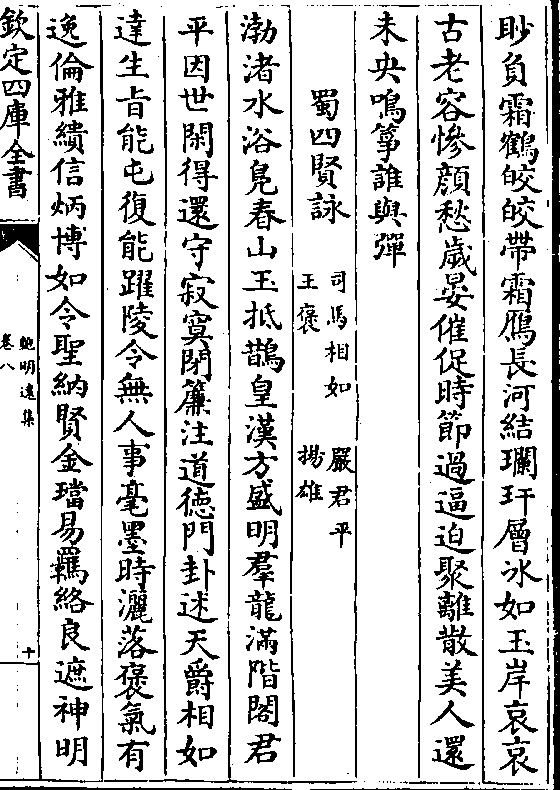 眇負霜鶴皎皎帶霜鴈長河結瓓玕層冰如玉岸哀哀
古老容慘顔愁歲晏催促時節過逼迫聚離散美人還
未央鳴箏誰與彈
蜀四賢詠 司馬相如 嚴君平
王褒 揚雄
渤渚水浴鳧春山玉抵鵲皇漢方盛明羣龍滿階閣君
平因世閑得還守寂寞閉簾注道徳門卦述天爵相如
達生旨能屯復能躍陵令無人事毫墨時灑落褒氣有
逸倫雅繢信炳博如令聖納賢金璫易羈絡良遮神明
欽定四庫全書
鮑明遠集
卷八
十